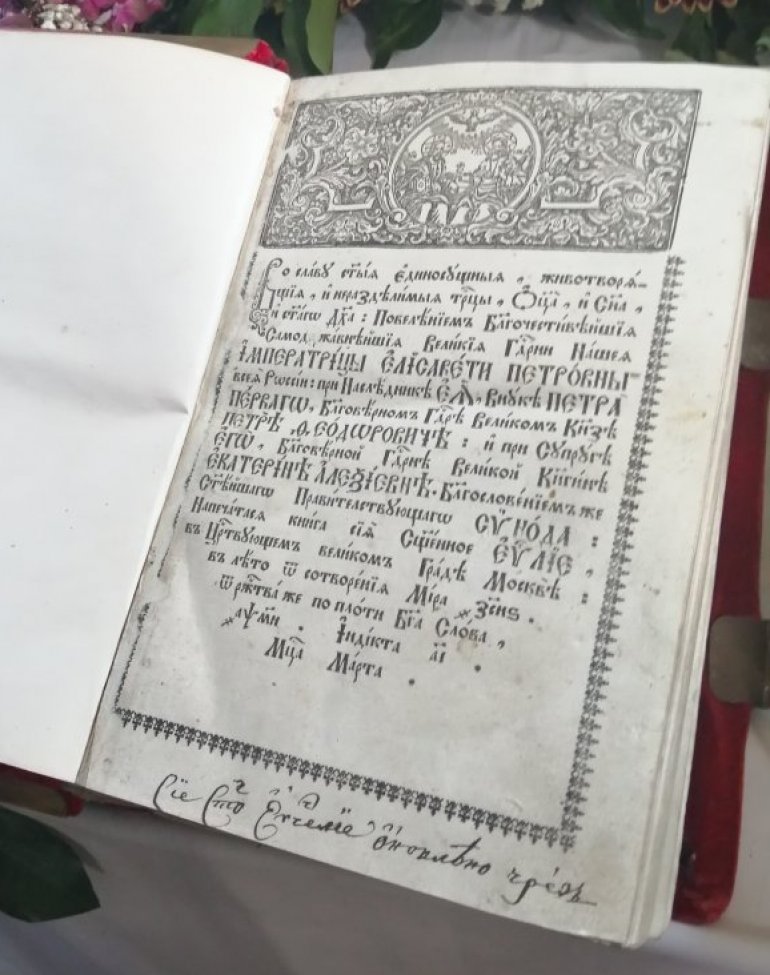 Во славу ст҃ыѧ єдиносущныѧ, животворѧ-
щіѧ, и҆ нераздѣлимыѧ трⷪ҇цы, Ѻ҆ц҃а, и҆ Сн҃а,
и҆ ст҃агѡ Дх҃а: Повелѣнїемъ Бл҃гочестивѣйшїѧ
Самодержавнѣйшїѧ Великїѧ Гдⷭ҇рни Нашеѧ
И҆МПЕРАТРИЦЫ Є҆ЛІСАВЕТИ ПЕТРОВНЫ
всеѧ Рѡссїи: при Наслѣдникѣ Є҆Ѧ̀, Внукѣ ПЕТРА
ПЕРВАГѠ, Бл҃говѣрномъ Гдⷭ҇рѣ Великомъ Кн҃зѣ
ПЕТРѢ ѲЕОДѠРОВИЧѢ: и҆ при Супругѣ
Є҆ГѠ, Бл҃говѣрной Гдⷭ҇рнѣ Великой Кнѧгинѣ
Є҆КАТЕРИНѢ А҆ЛЕѮІЕВНѢ. Бл҃гословенїемъ же
Ст҃ѣйшагѡ Правительствующагѡ СѴНОДА:
Напечатасѧ книга сїѧ̀ Сщ҃енное Є҆Ѵ҆ЛІЕ,
въ Црⷭ҇твующемъ великомъ Градѣ Москвѣ:
въ лѣто ѿ сотворенїѧ Міра ҂зсн҃ѕ.
ѿ ржⷭ҇тва же по плоти Бг҃а Слова,
҂аѱм҃и. І҆ндікта а҃і.
Мцⷭ҇а Марта.
Сїе Ст҃оⷱ҇ Є҆ѵⷢ҇елїе ѡ҆новлѣно чрезъ